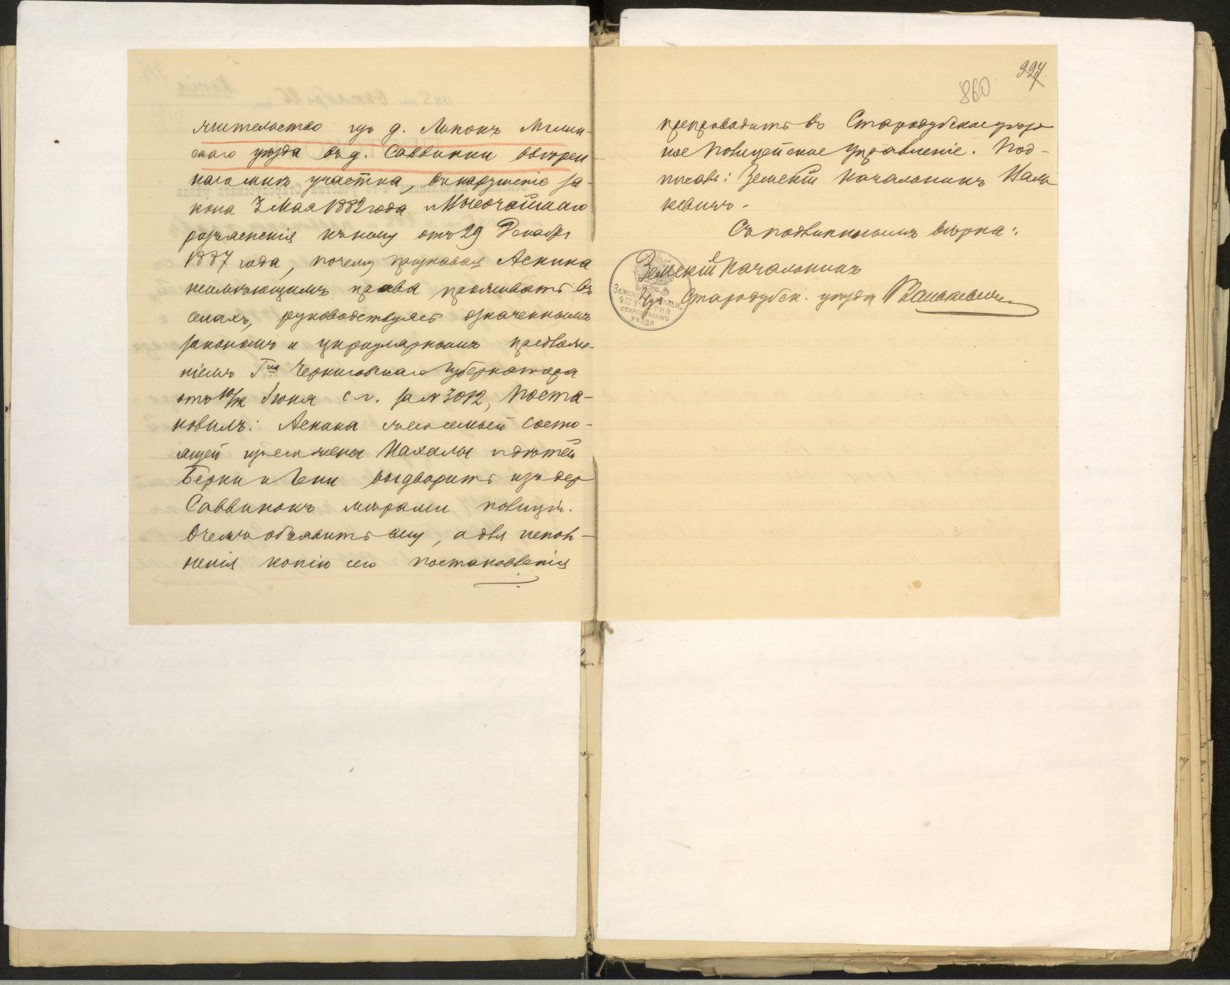 жительство изъ д. Липокъ Мглин-
скаго уѣзда въ д. Саввинки ввѣрен-
наго мнѣ участка, въ нарушеніе за-
кона 3 Мая 1882 года и Высочайшаго
разъясненія къ нему отъ 29 Декабря
1887 года, почему признавая Аскина
неимѣющимъ права проживать въ
селахъ, руководствуясь означеннымъ
закономъ и циркулярнымъ предложе-
ніемъ Гна Черниговскаго Губернатора
отъ Іюня с. г. за № 3012, Поста-
новилъ: Аскина съ семьей состо-
ящей изъ жены Махалы и дѣтей
Берки и Лени выдворить изъ дер
Саввинокъ мѣрами полиціи.
О чемъ объявить ему, а для испол-
ненія копію сего постановленія
994
860
препроводить въ Стародубское уѣзд-
ное Полицейское Управленіе. Под-
писалъ: Земскій Начальникъ Нань-
кевичъ.
Съ подлиннымъ вѣрна:
Земскій Начальникъ
4 уч. Стародубск. уѣзда